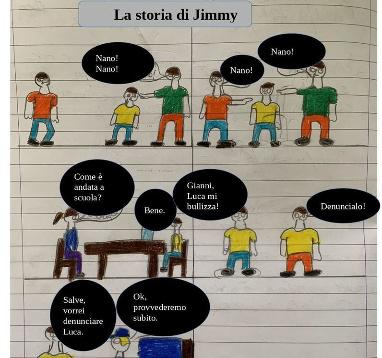 La storia di Jimmy
Nano!
Nano!
Nano!
Nano!
Come è
andata a
scuola?
Bene.
Gianni,
Luca mi
bullizza!
Denuncialo!
Salve,
vorrei
denunciare
Luca.
Ok,
provvederemo
subito.